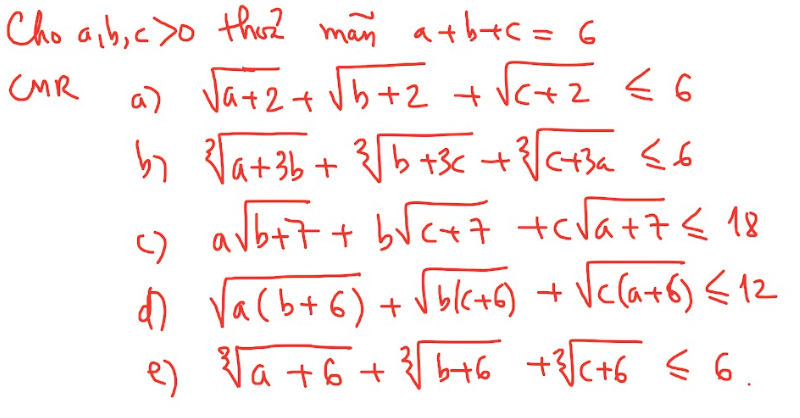 Cho a,b,c>0 thoả mãn a+b+c = 6
CMR a) √(a+2) + √(b+2) + √(c+2) ≤ 6
b) ∛(a+3b) + ∛(b+3c) + ∛(c+3a) ≤ 6
c) a√(b+7) + b√(c+7) + c√(a+7) ≤ 18
d) √(a(b+6)) + √(b(c+6)) + √(c(a+6)) ≤ 12
e) ∛(a+6) + ∛(b+6) + ∛(c+6) ≤ 6.